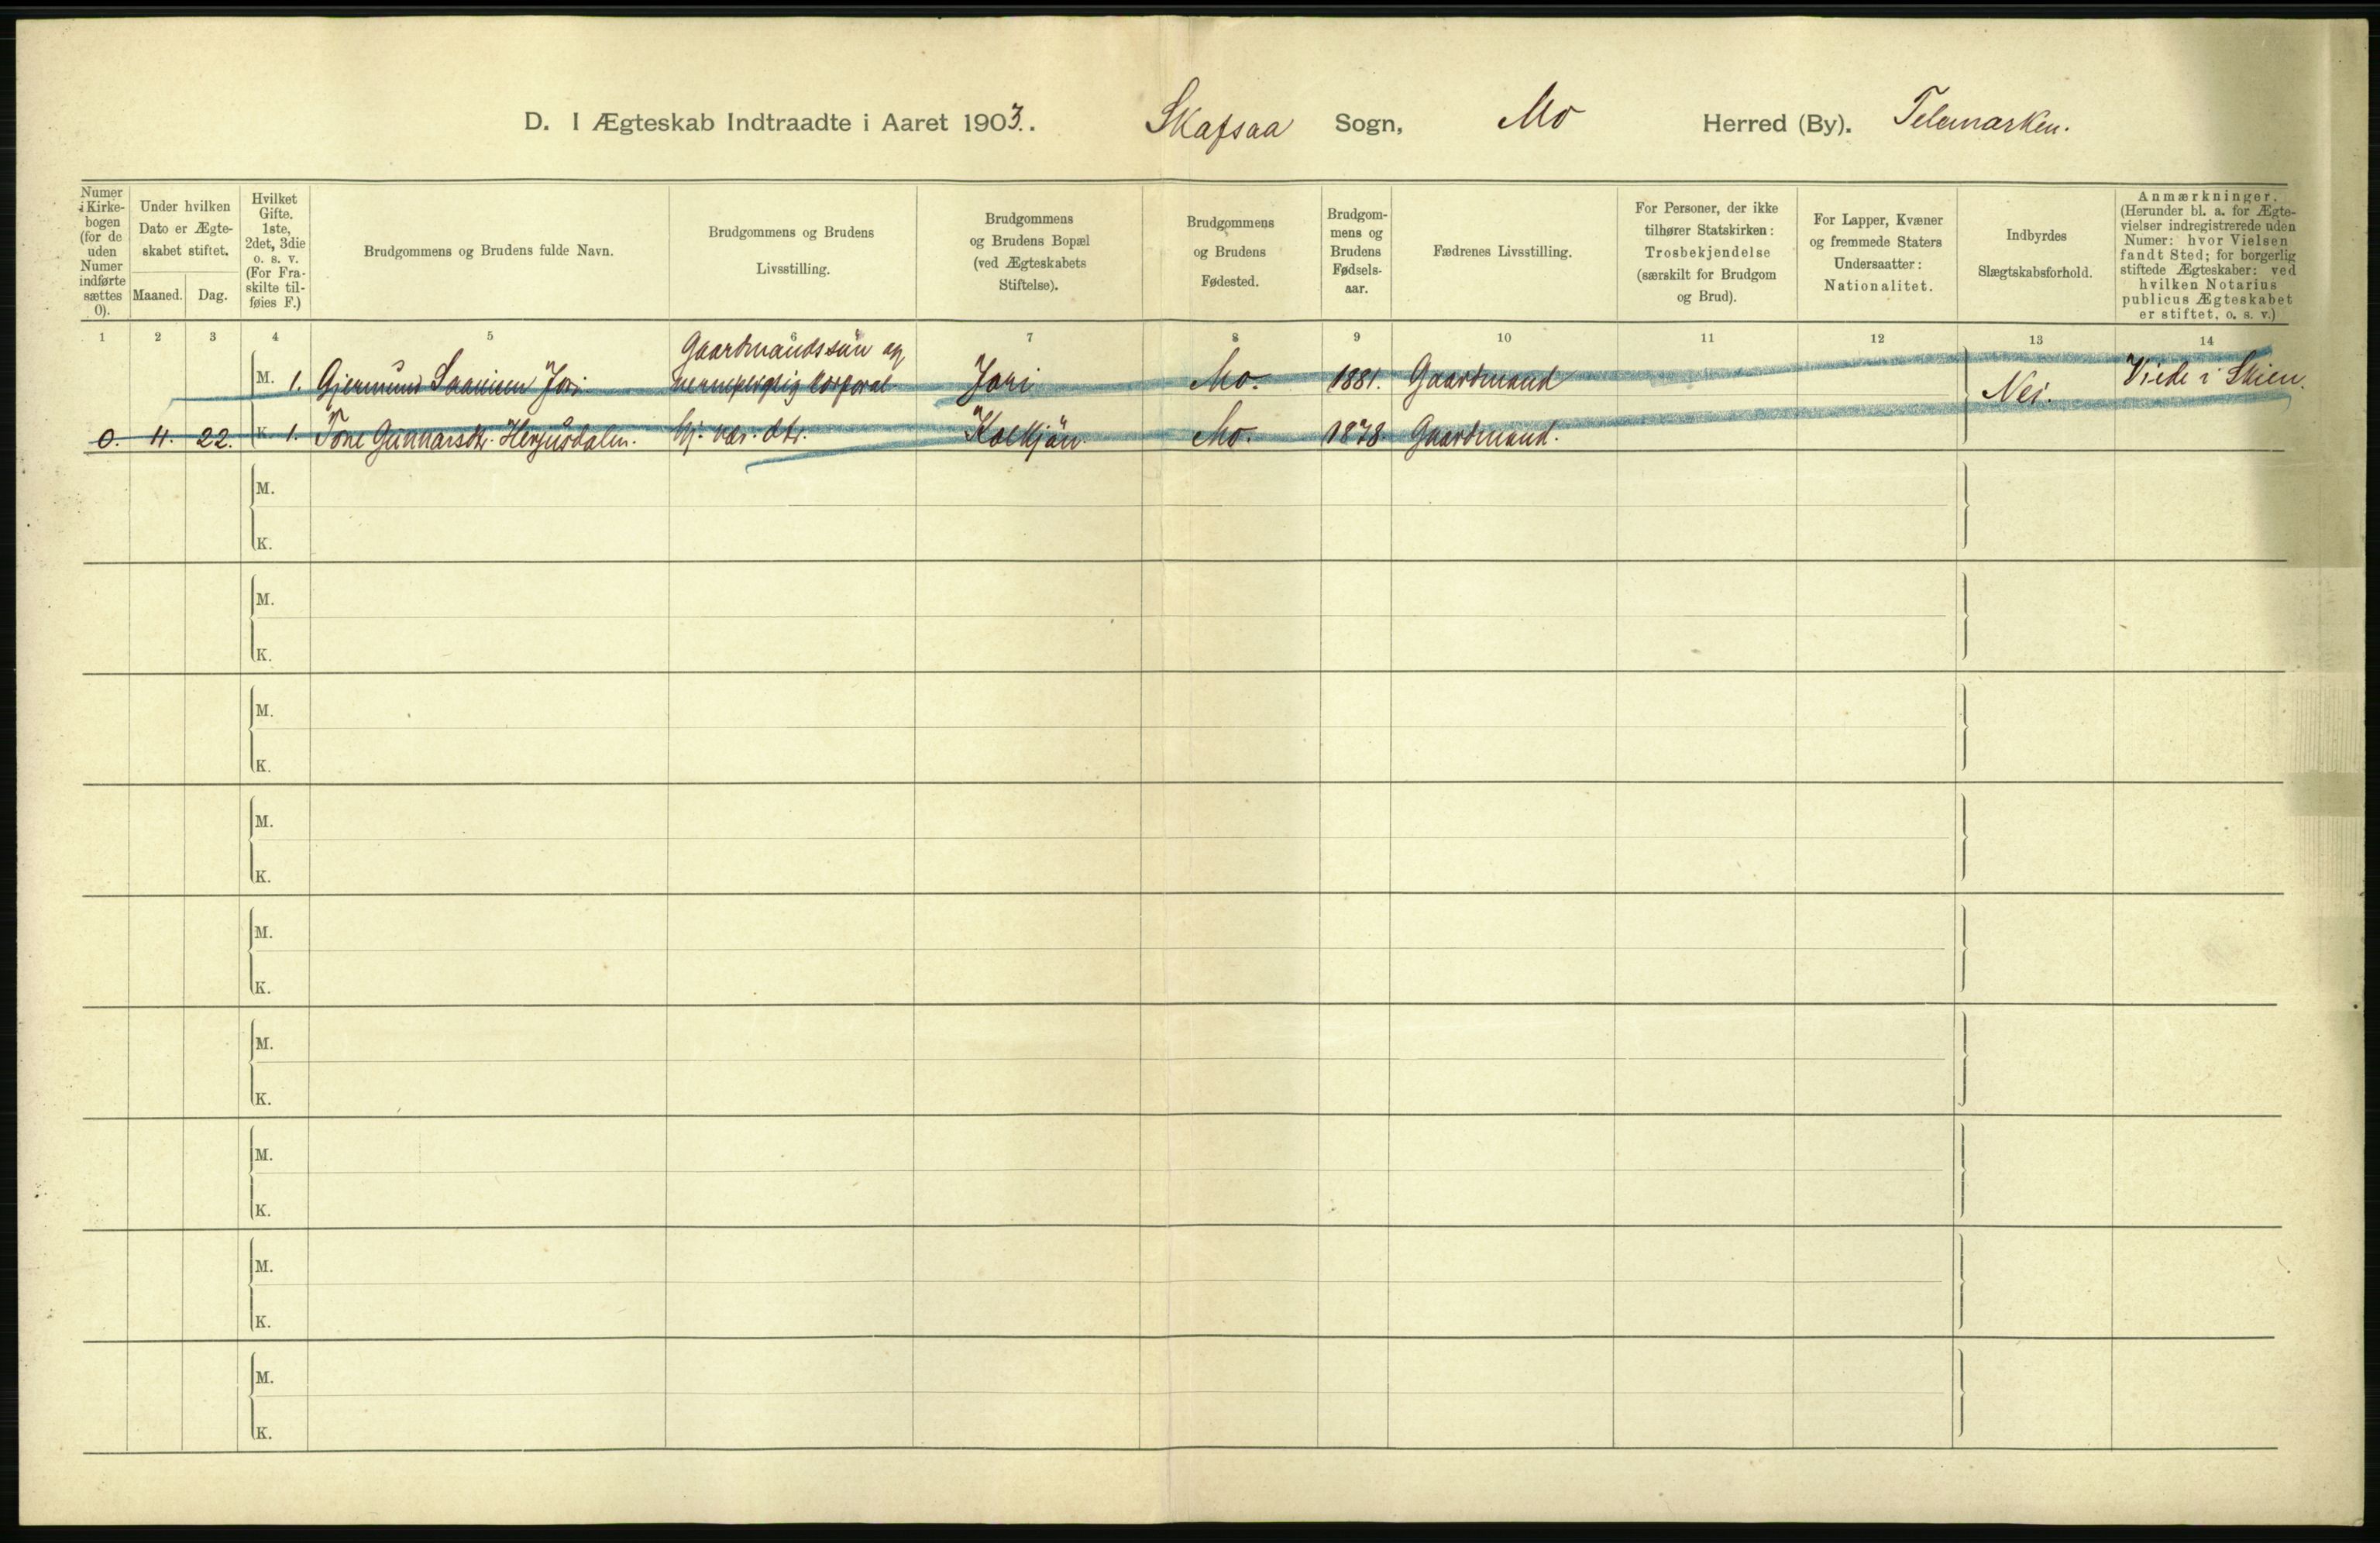 D. I Ægteskab Indtraadte i Aaret 1903. Skafsaa Sogn, Mo Herred (By). Telemarken.
Numer i Kirkebogen (for de uden Numer indførte sættes 0).
Under hvilken Dato er Ægteskabet stiftet.
Maaned. Dag.
Hvilket Gifte. 1ste, 2det, 3die o. s. v. (For Fraskilte tilføies F.)
Brudgommens og Brudens fulde Navn.
Brudgommens og Brudens Livsstilling.
Brudgommens og Brudens Bopæl (ved Ægteskabets Stiftelse).
Brudgommens og Brudens Fødested.
Brudgommens og Brudens Fødselsaar.
Fædrenes Livsstilling.
For Personer, der ikke tilhører Statskirken: Trosbekjendelse (særskilt for Brudgom og Brud).
For Lapper, Kvæner og fremmede Staters Undersaatter: Nationalitet.
Indbyrdes Slægtskabsforhold.
Anmærkninger. (Herunder bl. a. for Ægtevielser indregistrerede uden Numer: hvor Vielsen fandt Sted; for borgerlig stiftede Ægteskaber: ved hvilken Notarius publicus Ægteskabet er stiftet, o. s. v.)
1 2 3 4 5 6 7 8 9 10 11 12 13 14
Gaardmandssøn og
M. 1. Gjermund Jori korporal Jori Mo. 1881. Gaardmand Nei. Viede i Skien.
0. 4. 22. K. 1. Tone Gunnarsdtr. Mo. 1878. Gaardmand.
M.
K.
M.
K.
M.
K.
M.
K.
M.
K.
M.
K.
M.
K.
M.
K.
M.
K.